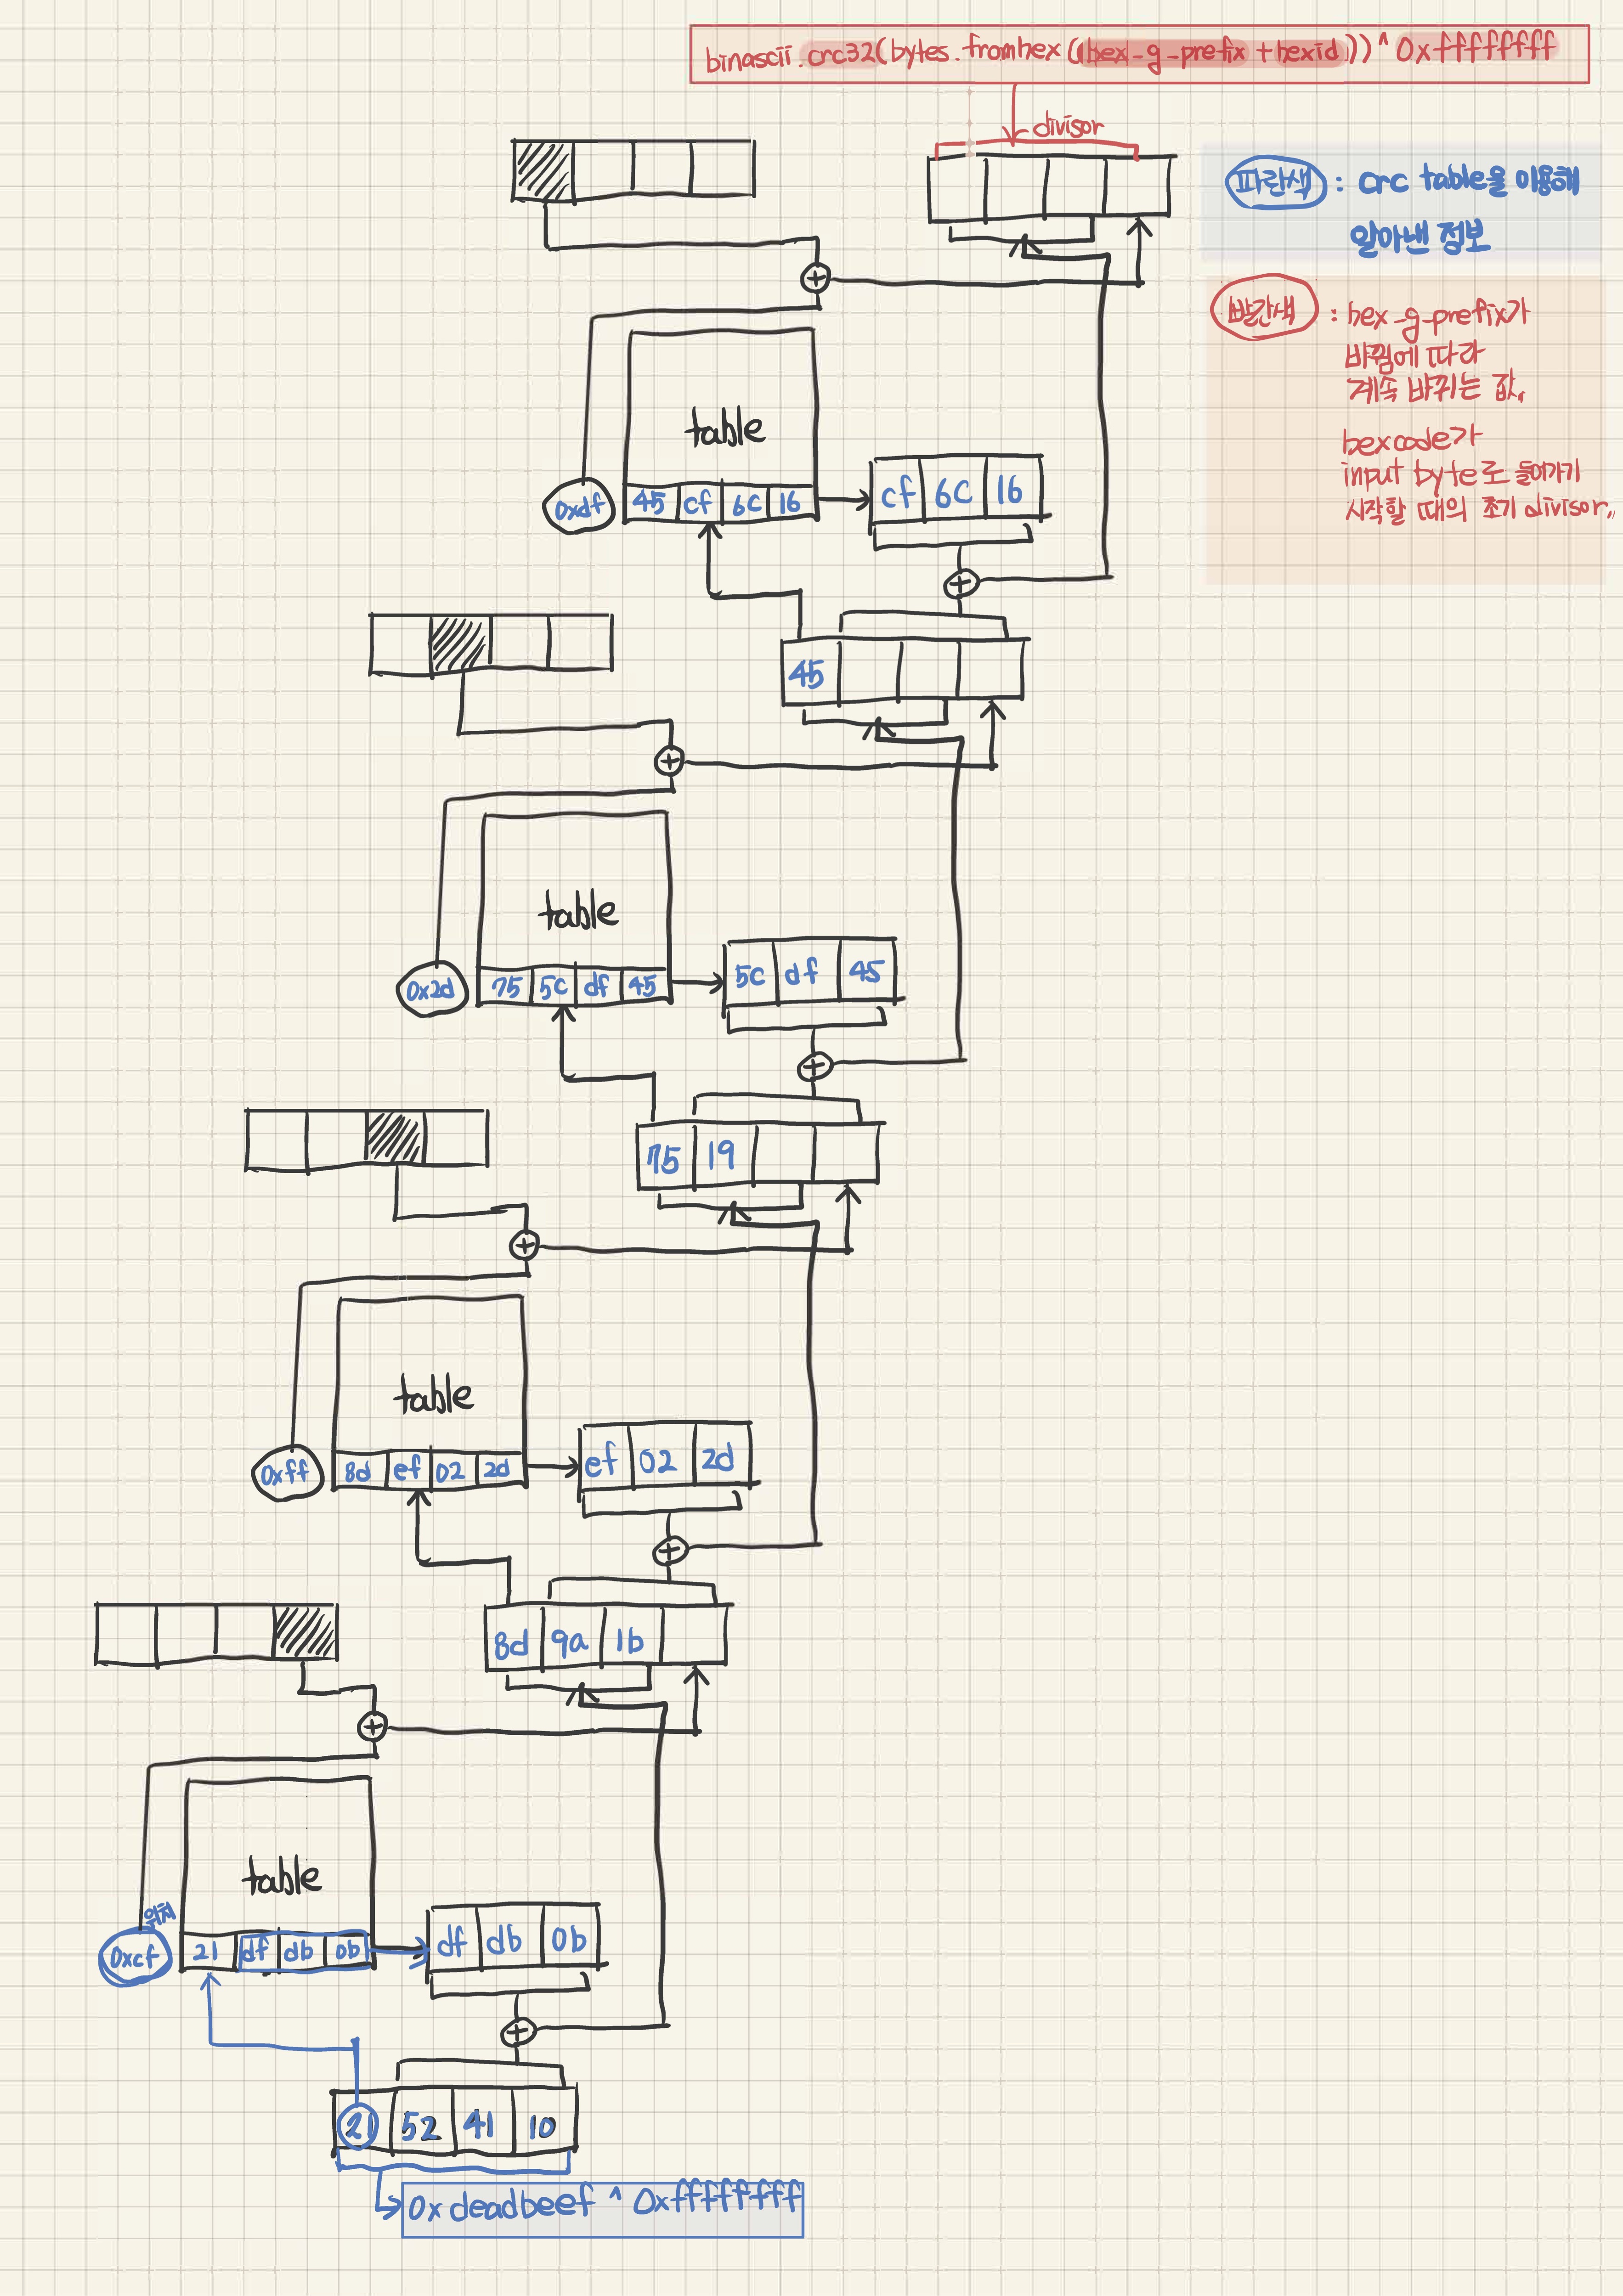 binascii.crc32(bytes.fromhex(hex_g_prefix + hexid)) ^ 0xffffffff
divisor
파란색 : crc table을 이용해
알아낸 정보
빨간색 : hex_g_prefix가
바뀜에 따라
계속 바뀌는 값.
hexcode가
input byte로 들어가기
시작할 때의 초기 divisor,,
table
0xdf 45 cf 6c 16 cf 6c 16
45
table
0x2d 75 5c df 45 5c df 45
75 19
table
0xff 8d ef 02 2d ef 02 2d
8d 9a 1b
table
위치
0xcf 21 df db 0b df db 0b
21 52 41 10
0xdeadbeef ^ 0xffffffff